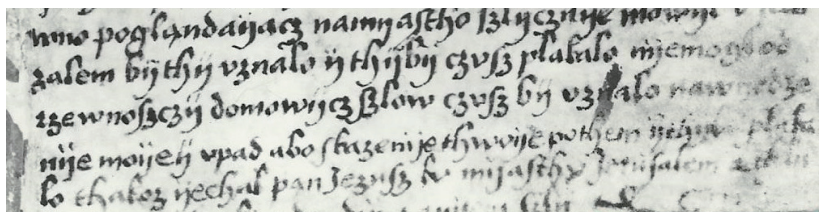 wno poglandaijącz namijastho sslijcznije mowijl
zalem bij thij vznalo ij thijbij czvsz plakalo nijemogl od
rzewnosczij domowijcz sslow czvsz bij vznalo nawiedze
nije moijeij vpad abo skazenije thwoije pothem plaka
lo thakoz ijechal pan Jezussz kv mijasthv Jerusalem